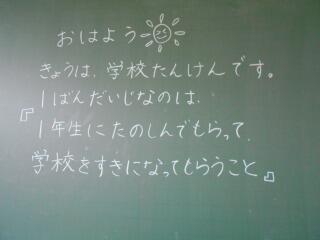 おはよう
きょうは、学校たんけんです。
1ばんだいじなのは、
『1年生にたのしんでもらって、
学校をすきになってもらうこと』